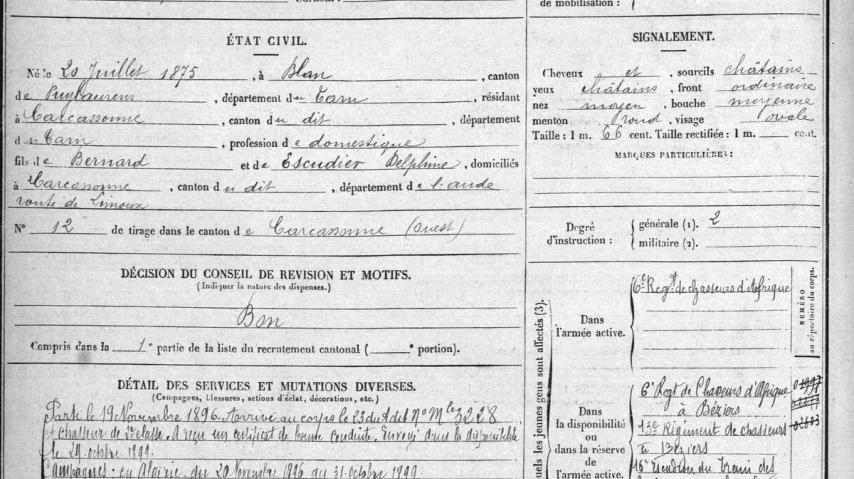 de mobilisation :
ÉTAT CIVIL.
Né le 20 Juillet 1875, à Blan, canton
de Puylaurens, département du Tarn, résidant
à Carcassonne, canton du dit, département
du Tarn, profession de domestique
fils de Bernard et de Escudier Delphine, domiciliés
à Carcassonne, canton du dit, département de l'aude
route de Limoux
N° 12 de tirage dans le canton de Carcassonne (ouest)
DÉCISION DU CONSEIL DE REVISION ET MOTIFS.
(Indiquer la nature des dispenses.)
Bon
Compris dans la 1e partie de la liste du recrutement cantonal ( e portion).
DÉTAIL DES SERVICES ET MUTATIONS DIVERSES.
(Campagnes, blessures, actions d'éclat, décorations, etc.)
Parti le 19 Novembre 1896. Arrivé au corps le 23 du dit N° Mle 3228
chasseur de 2e classe. A reçu un certificat de bonne conduite. Envoyé dans la disponibilité
le 29 octobre 1899.
Campagnes : en Algérie du 20 Novembre 1896 au 31 octobre 1899.
SIGNALEMENT.
Cheveux et, sourcils châtains
yeux châtains, front ordinaire
nez moyen, bouche moyenne
menton rond, visage ovale
Taille : 1 m. 66 cent. Taille rectifiée : 1 m. cent.
MARQUES PARTICULIÈRES :
Degré d'instruction :
générale (1). 2
militaire (2).
uels les jeunes gens sont affectés (3).
Dans l'armée active.
6e Regt de chasseurs d'Afrique
NUMÉRO
au répertoire du corps.
Dans la disponibilité ou dans la réserve de l'armée active.
6e Regt de Chasseurs d'Afrique
à Béziers
13e Régiment de chasseurs
à Béziers
16e Escadron du train des